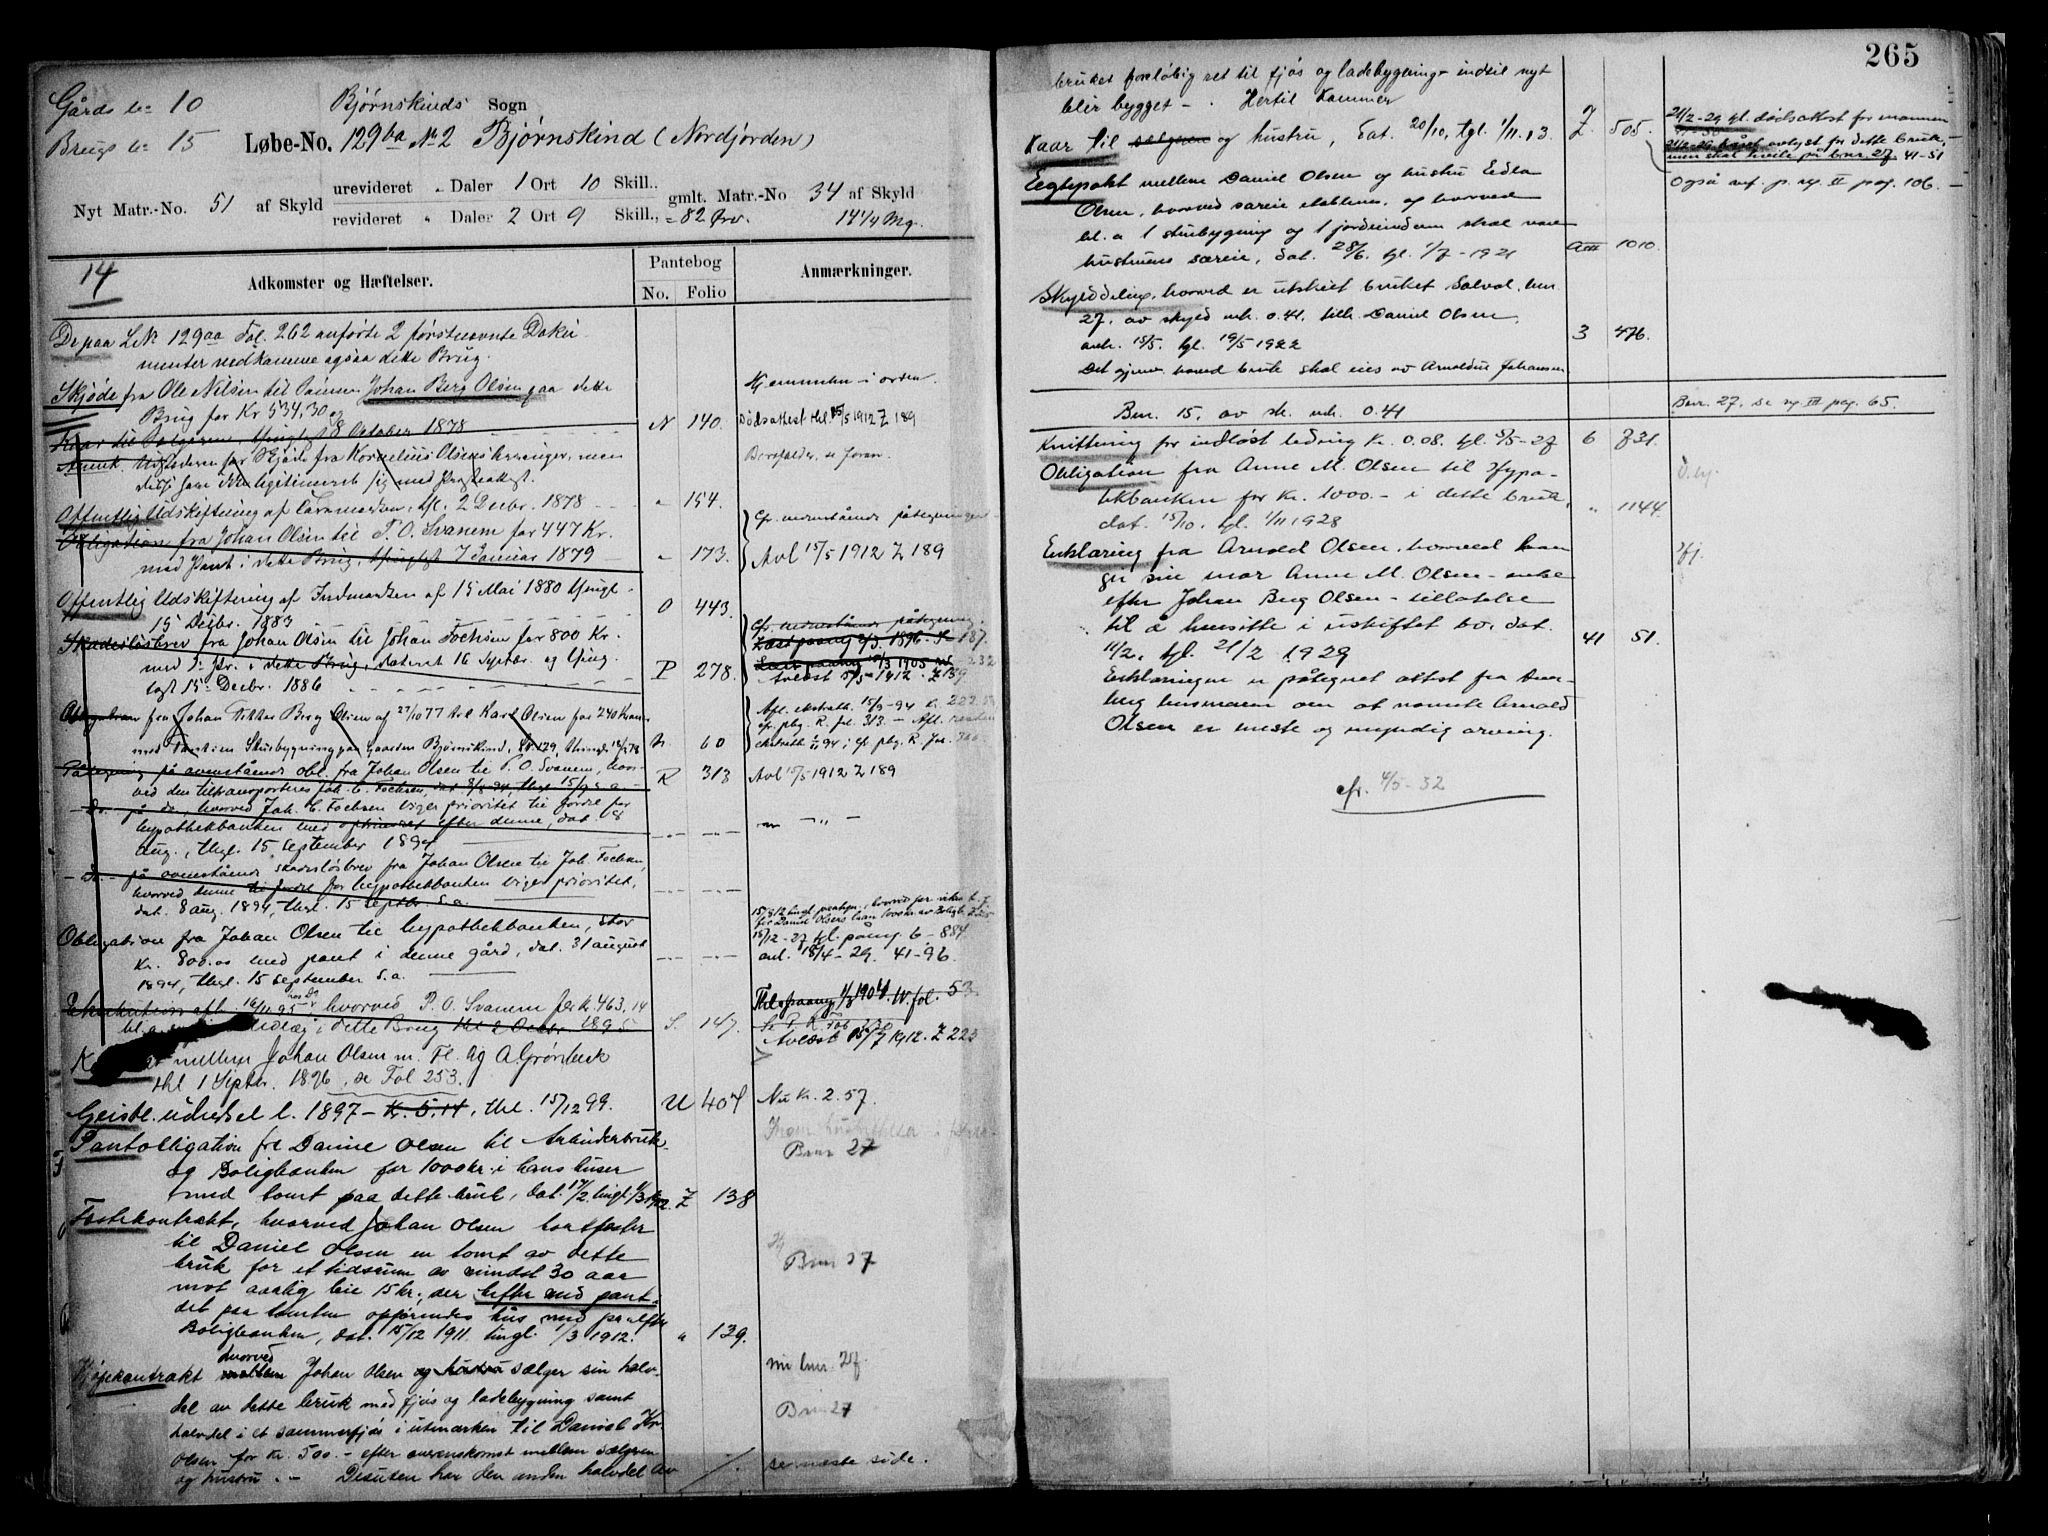 265
Gårds No 10
Bjørnskinds Sogn
Brugs No 15 Løbe-No. 129ba No 2 Bjørnskind (Nordjorden)
Nyt Matr.-No. 51 af Skyld
urevideret " Daler 1 Ort 10 Skill..
revideret " Daler 2 Ort 9 Skill., = 82 Øre.
gmlt. Matr.-No 34 af Skyld
14 1/4 Mg.
14
Adkomster og Hæftelser.
Pantebog
No. Folio
Anmærkninger.
De paa L.No 129aa Fol. 262 anførte 2 førstnævnte Doku
menter vedkomme ogsaa dette Brug.
Skjøde fra Ole Nilsen til Sønnen Johan Berg Olsen paa dette
Brug for Kr 534,30 og
Hjemmelen i orden.
Kaar til Sælgeren, thinglyst 8 October 1878 N 140. Dødsattest thl. 15/5 1912 Z 189
Anmk. Udstederen har Skjøde fra Kornelius Olsens , men
Bortfalder, se foran.
ikke legitimeret sig med
Offentlig Udskiftning af , thl. 2 Decbr. 1878 " 154.
Obligation fra Johan Olsen til P. O. Svanem for 447 Kr. Cfr. nedenstående påtegninger
med Pant i dette Brug, thinglyst 7 Januar 1879 - " 173. Avl 15/5 1912 Z 189
Offentlig Udskiftning af Indmarken af 15 Mai 1880 thingl.
15 Decbr. 1883 O 443.
Skadesløsbrev fra Johan Olsen til Johan Fochsen for 800 Kr. Cfr. nedenstående påtegning.
med 1ste Pr. i dette Brug, dateret 16 Septbr. og thing P 278. 1896. 187.
lyst 15de Decbr. 1886 Avlæst 15/5 1912. Z 189
Obligation fra Johan Berg Olsen af 27/10 77 til Karl Olsen for 240 Kroner
med Pant i en Stuebygning paa Gaarden Bjørnskind, L.129, thingl. N. 60
Påtegning på ovenstående obl. fra Johan Olsen til P. O. Svanem, hvor-
ved den tiltransporteres Joh. C. Fochsen, dat 8/8 94, thgl. 15/9 s.a. R 313 Avl 15/5 1912 Z 189
- Do. - på do, hvorved Joh. C. Fochsen viger prioritet til fordel for
hypothekbanken med efter denne, dat. 8
aug., thgl. 15 september 1894
- Do. - på ovenstående skadesløsbrev fra Johan Olsen til Joh. Fochsen,
hvorved denne til fordel for hypothekbanken viger prioritet,
dat. 8 aug. 1894, thgl. 15 septbr s.a.
Obligation fra Johan Olsen til hypothekbanken, stor
Kr. 800.00 med pant i denne gård, dat. 31 august
1894, thgl. 15 september s.a.
15/12-27 tgl. påteg. 6-884
avl. 18/4-29. 41-96.
Exekution afh. 16/11 95 hvorved P. O. Svanem for k. 463,14
udlæg i dette Brug 1895 S. 147.
Thl. paateg 1/3 1904. W. fol. 53
Avlæst 15/7 1912. Z 225
mellem Johan Olsen m. Fl. og A Grønbeck
thl 1 Septbr. 1896, se Fol 253.
Geistl. udredsel l. 1897 - Kr. 5.14, thl. 15/12 99. U 404 Nu K. 2.57.
Pantobligation fra Daniel Olsen til Arbeiderbruk-
og Boligbanken for 1000 kr. i hans huser
med tomt paa dette bruk, dat. 17/2 tingl. 1/3 1912. Z 138
Bnr 27
Festekontrakt, hvorved Johan Olsen bortfester
til Daniel Olsen en tomt av dette
bruk for et tidsrum av mindst 30 aar
mot aarlig leie 15 kr., der hefter med pant-
det paa tomten opførendes hus med pr. efter
Boligbanken, dat. 15/12 1911 tingl. 1/3 1912. " 139.
Bnr 27
Kjøpekontrakt hvorved mellem Johan Olsen og hustru sælger sin halv-
del av dette bruk med fjøs og ladebygning samt
halvdel i et sommerfjøs i utmarken til Daniel Kr.
Olsen for kr. 500.- efter overenskomst mellem sælgeren
og hustru. - Desuten har den anden halvdel av
nu bnr. 27
Bnr 27
se næste side.
bruket foreløbig ret til fjøs og ladebygning indtil nyt
blir bygget - . Hertil kommer
Kaar til sælgeren og hustru, dat. 20/10, tgl. 1/11.13. Z. 505.
21/2-29 tgl. dødsattest for mannen
21/2-29 kåret avlyst for dette bruk,
men skal hvile på bnr. 27. 41-51
Også ref. p. ny II pag. 106. -
Egtepakt mellem Daniel Olsen og hustru Edla
Olsen, hvorved særeie etableres, og hvorved
bl. a 1 stuebygning og 1 jordeiendom skal være
hustruens særeie, dat. 28/6. tgl. 1/7-1921 AIII 1010.
Skylddeling, hvorved er utskiet bruket Solvol, bnr.
27, av skyld mk. 0.41, tilh. Daniel Olsen,
avh. 15/5. tgl. 19/5 1922 3 476.
Det gjenværende bruk skal eies av Arnoldus Johansen
Bnr. 15, av sk. mk. 0.41
Bnr. 27, se ny III pag. 65.
Kvittering for indløst leding kr. 0.08. tgl. 3/5-27 6 731.
Obligation fra Anne M. Olsen til Hypo-
tekbanken for kr. 1000.- i dette bruk,
dat. 15/10, tgl. 1/11 1928 " 1144.
Erklæring fra Arnold Olsen, hvorved han
gir sin mor Anne M. Olsen - enke
efter Johan Berg Olsen - tillatelse
til å hensitte i uskiftet bo, dat.
11/2, tgl. 21/2 1929 41 51.
Hj.
Erklæringen er påtegnet attest fra
om at nevnte Arnold
Olsen er eneste og myndig arving.
cfr. 4/5-32